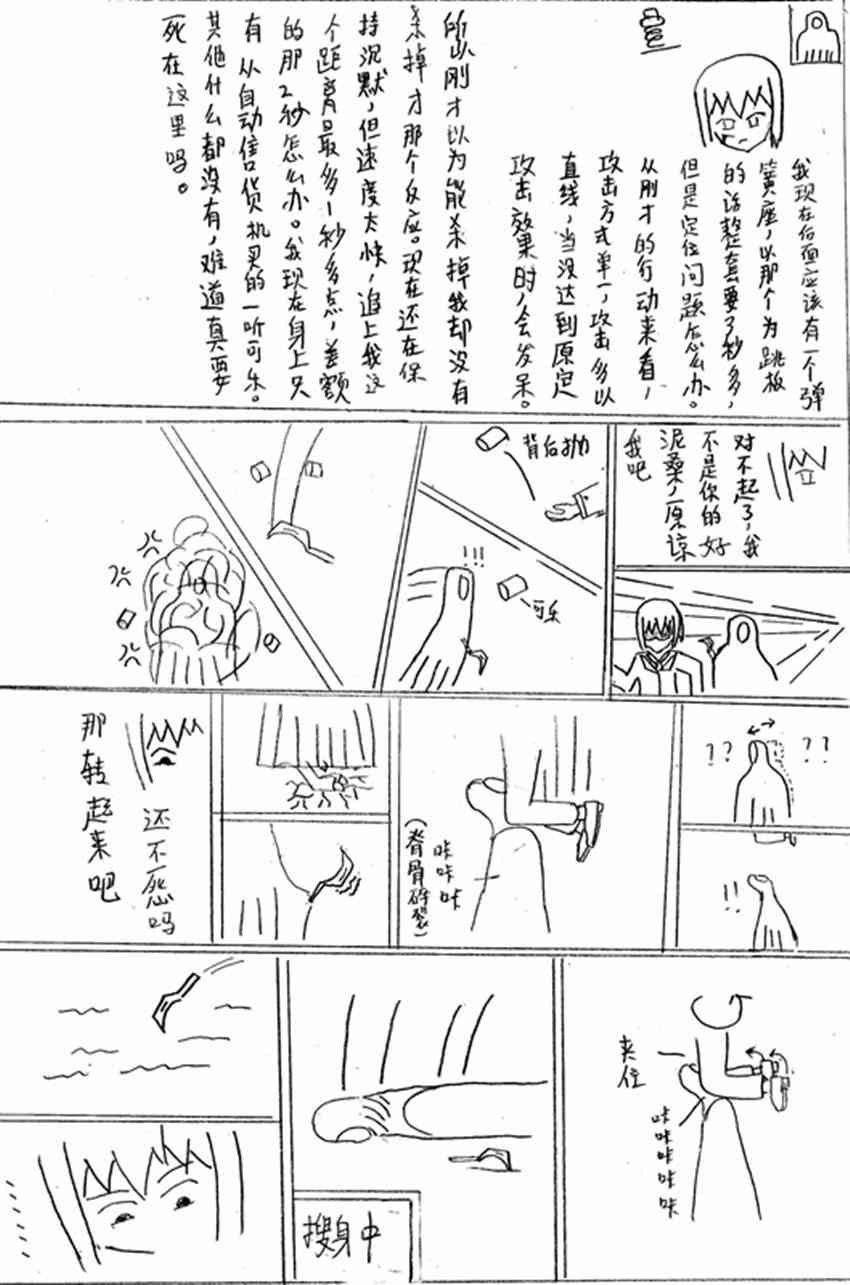 我现在后面应该有一个弹
簧座,以那个为跳板
的话整套要了秒多,
但是定位问题怎么办。
从刚才的行动来看,
攻击方式单一,攻击多以
直线,当没达到原定
攻击效果时,会发呆。
所以刚才以为能杀掉我却没有
杀掉才那个反应。现在还在保
持沉默,但速度太快,追上我这
个距离最多1秒多点,差额
的那2秒怎么办。我现在身上只
有从自动售货机买的一听可乐。
其他什么都没有,难道真要
死在这里吗。
对不起了,我
不是你的好
泥桑,原谅
我吧
背后抛
!!!
可乐
?? ??
!!
咔咔咔
(脊骨碎裂)
还不死吗
那转起来吧
夹住
咔咔咔咔咔
搜身中